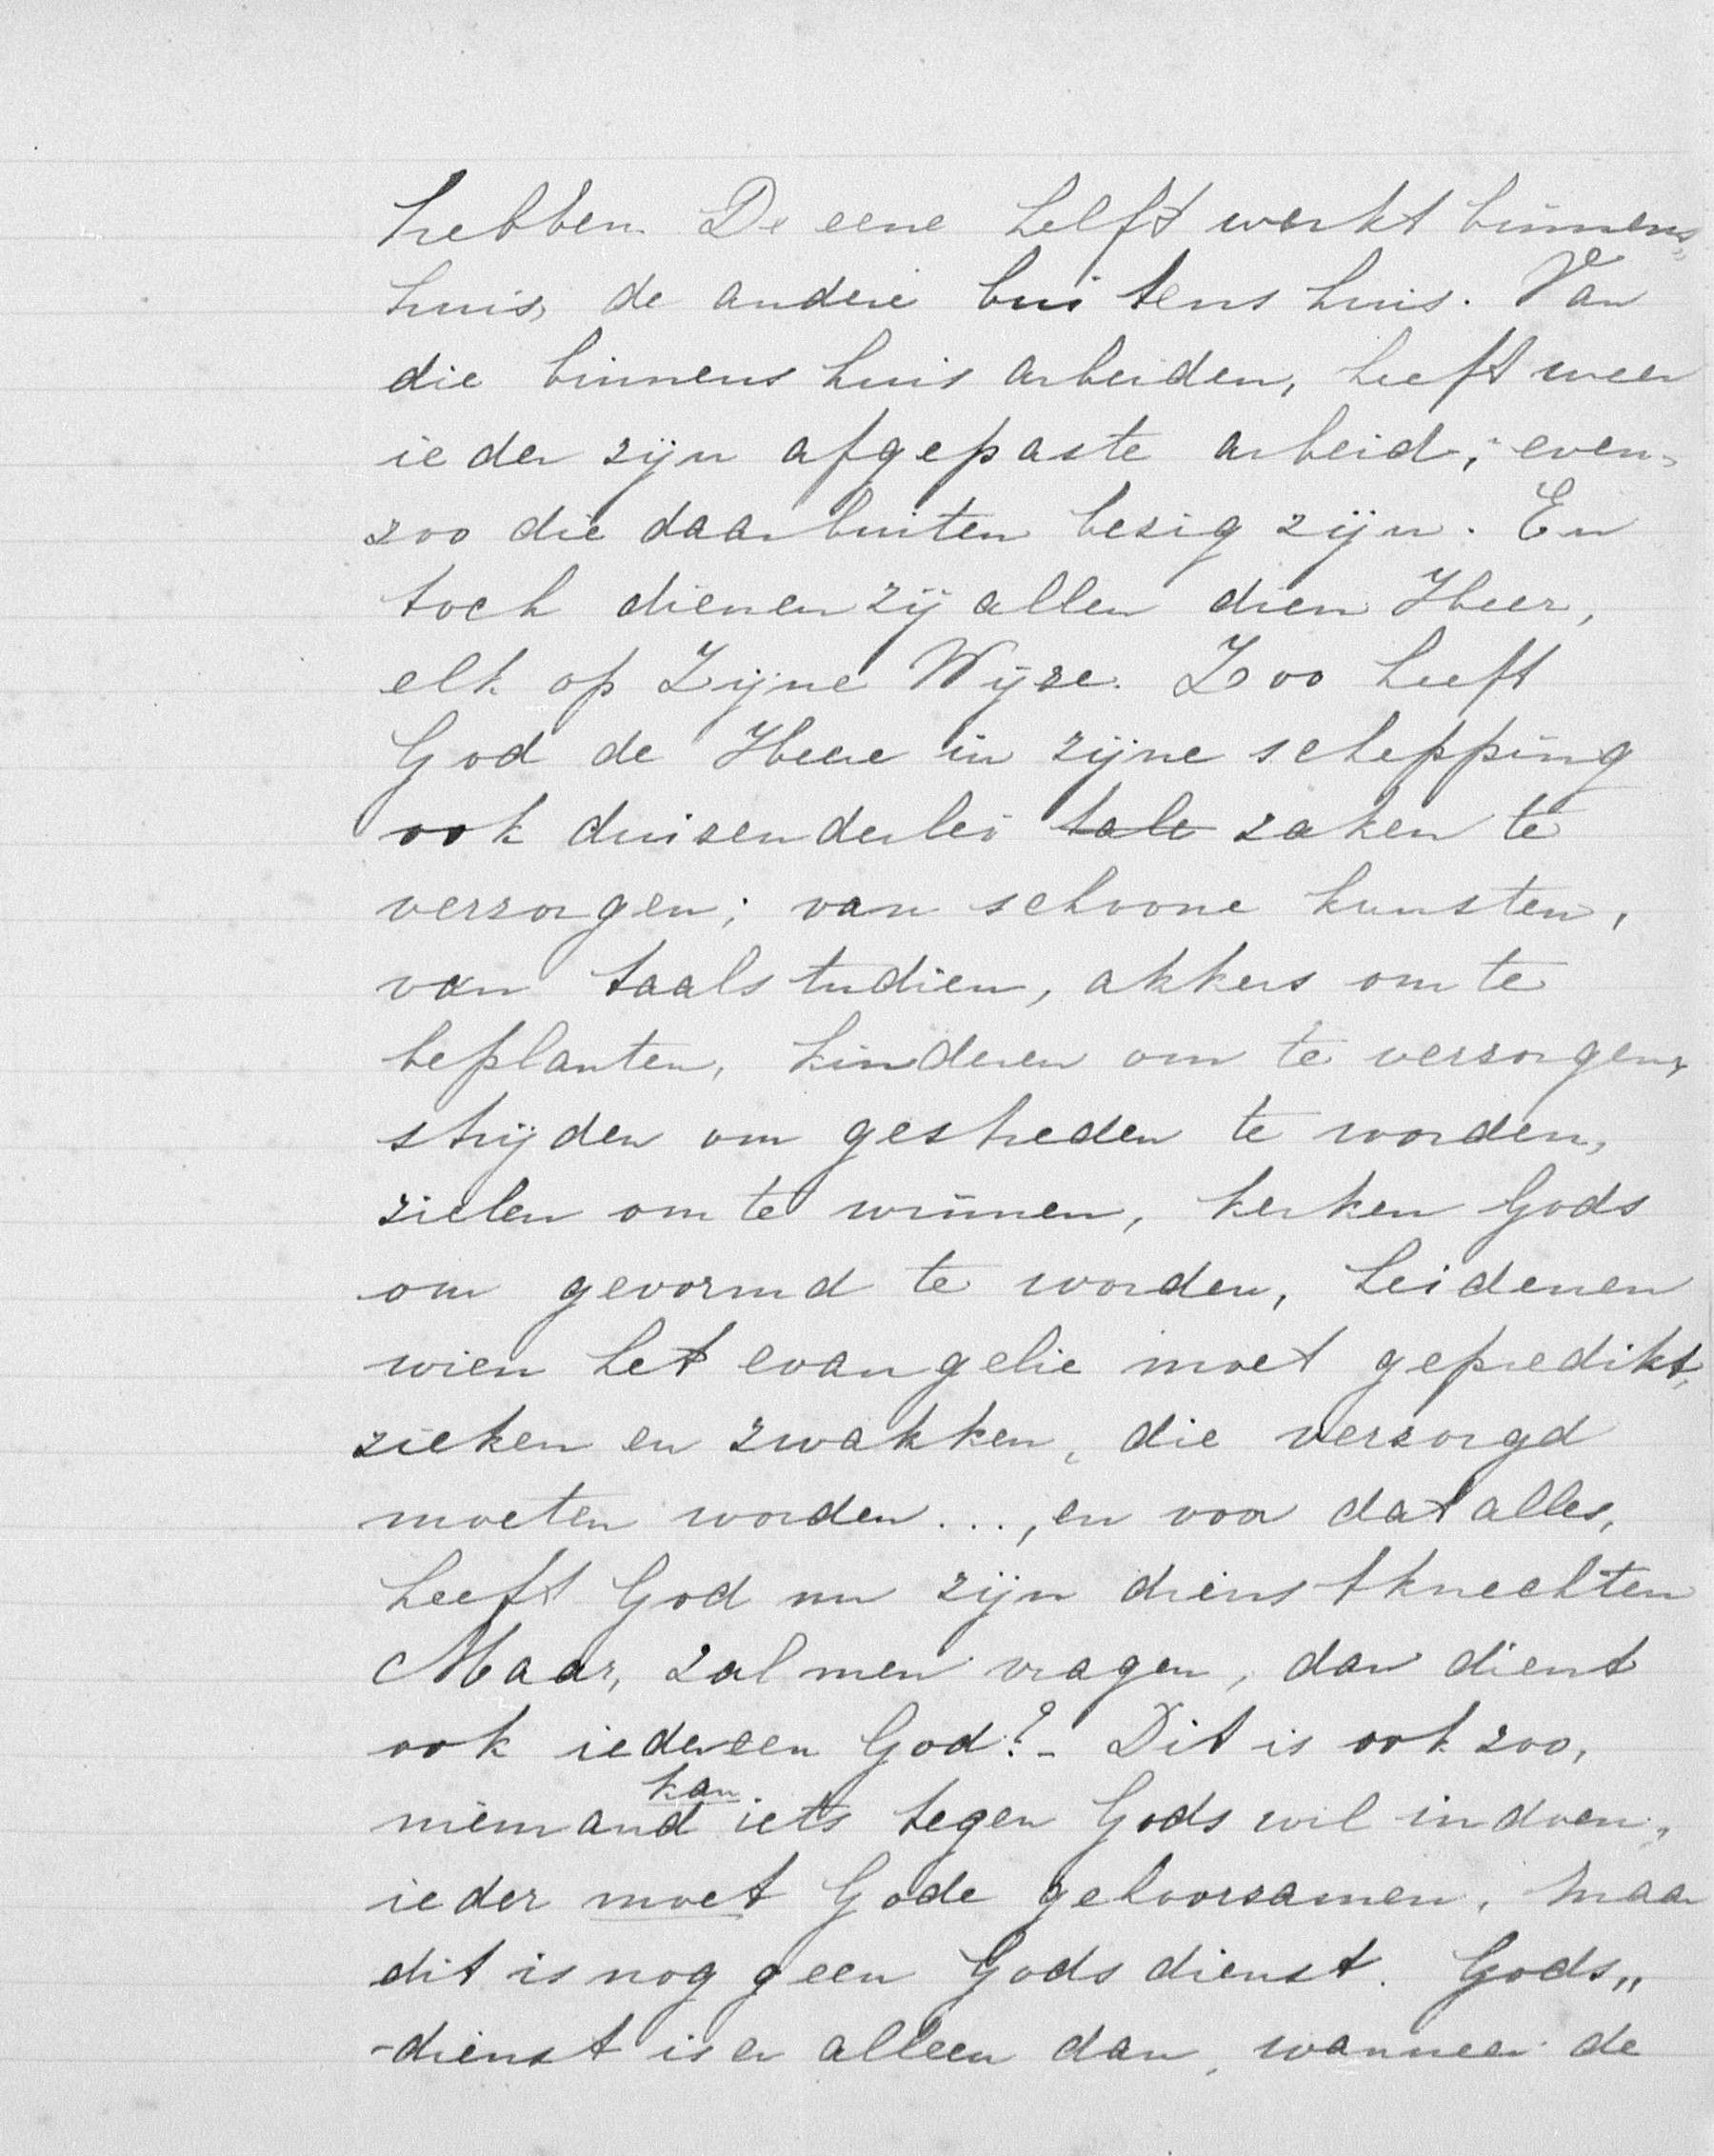 hebben. De eene helft werkt binnens„
huis, de andere buitens huis. Van
die binnens huis arbeiden, heeft weer
ieder zijn afgepaste arbeid; even„
zoo die daarbuiten bezig zijn. En
toch dienen zij allen dien Heer,
elk op Zijne Wijze. Zoo heeft
God de Heere in zijne schepping
ook duizenderlei tale zaken te
verzorgen; van schoone kunsten,
van taalstudien, akkers om te
beplanten, kinderen om te verzorgen,
strijden om gestreden te worden,
zielen om te winnen, kerken Gods
om gevormd te worden, heidenen
wien het evangelie moet gepredikt,
zieken en zwakken, die verzorgd
moeten worden..., en voor dat alles,
heeft God nu zijn dienstknechten
Maar, zal men vragen, dan dient
ook iedereen God? - Dit is ook zoo,
niemand kan iets tegen Gods wil in doen,
ieder moet Gode gehoorzamen, maar
dit is nog geen Godsdienst. Gods„
-dienst is er alleen dan, wanneer de